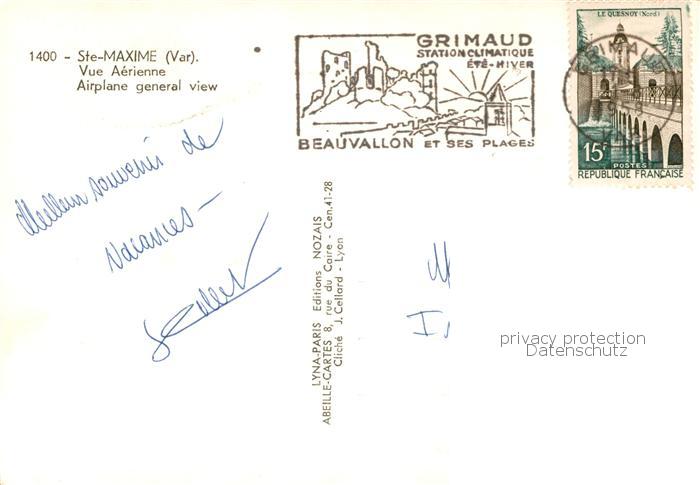 1400 - Ste-MAXIME (Var).
Vue Aérienne
Airplane general view
GRIMAUD
STATION CLIMATIQUE
ÉTÉ-HIVER
BEAUVALLON ET SES PLAGES
LE QUESNOY (Nord)
GRIMAUD
15F
POSTES
REPUBLIQUE FRANÇAISE
Meilleur souvenir de
vacances -
LYNA-PARIS Editions NOZAIS
ABEILLE-CARTES 8, rue du Caire - Cen. 41-28
Cliché J. Cellard - Lyon
M
privacy protection
Datenschutz